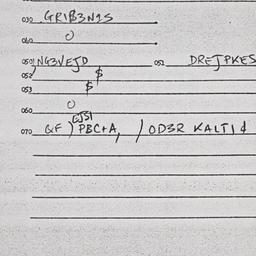 030 GRIB3N2S
040 0
050 NG3VEJD 051 DREJPKES
052 $
053 $
060 0
EJSI
070 QF PBC+A, / OD3R KALTI